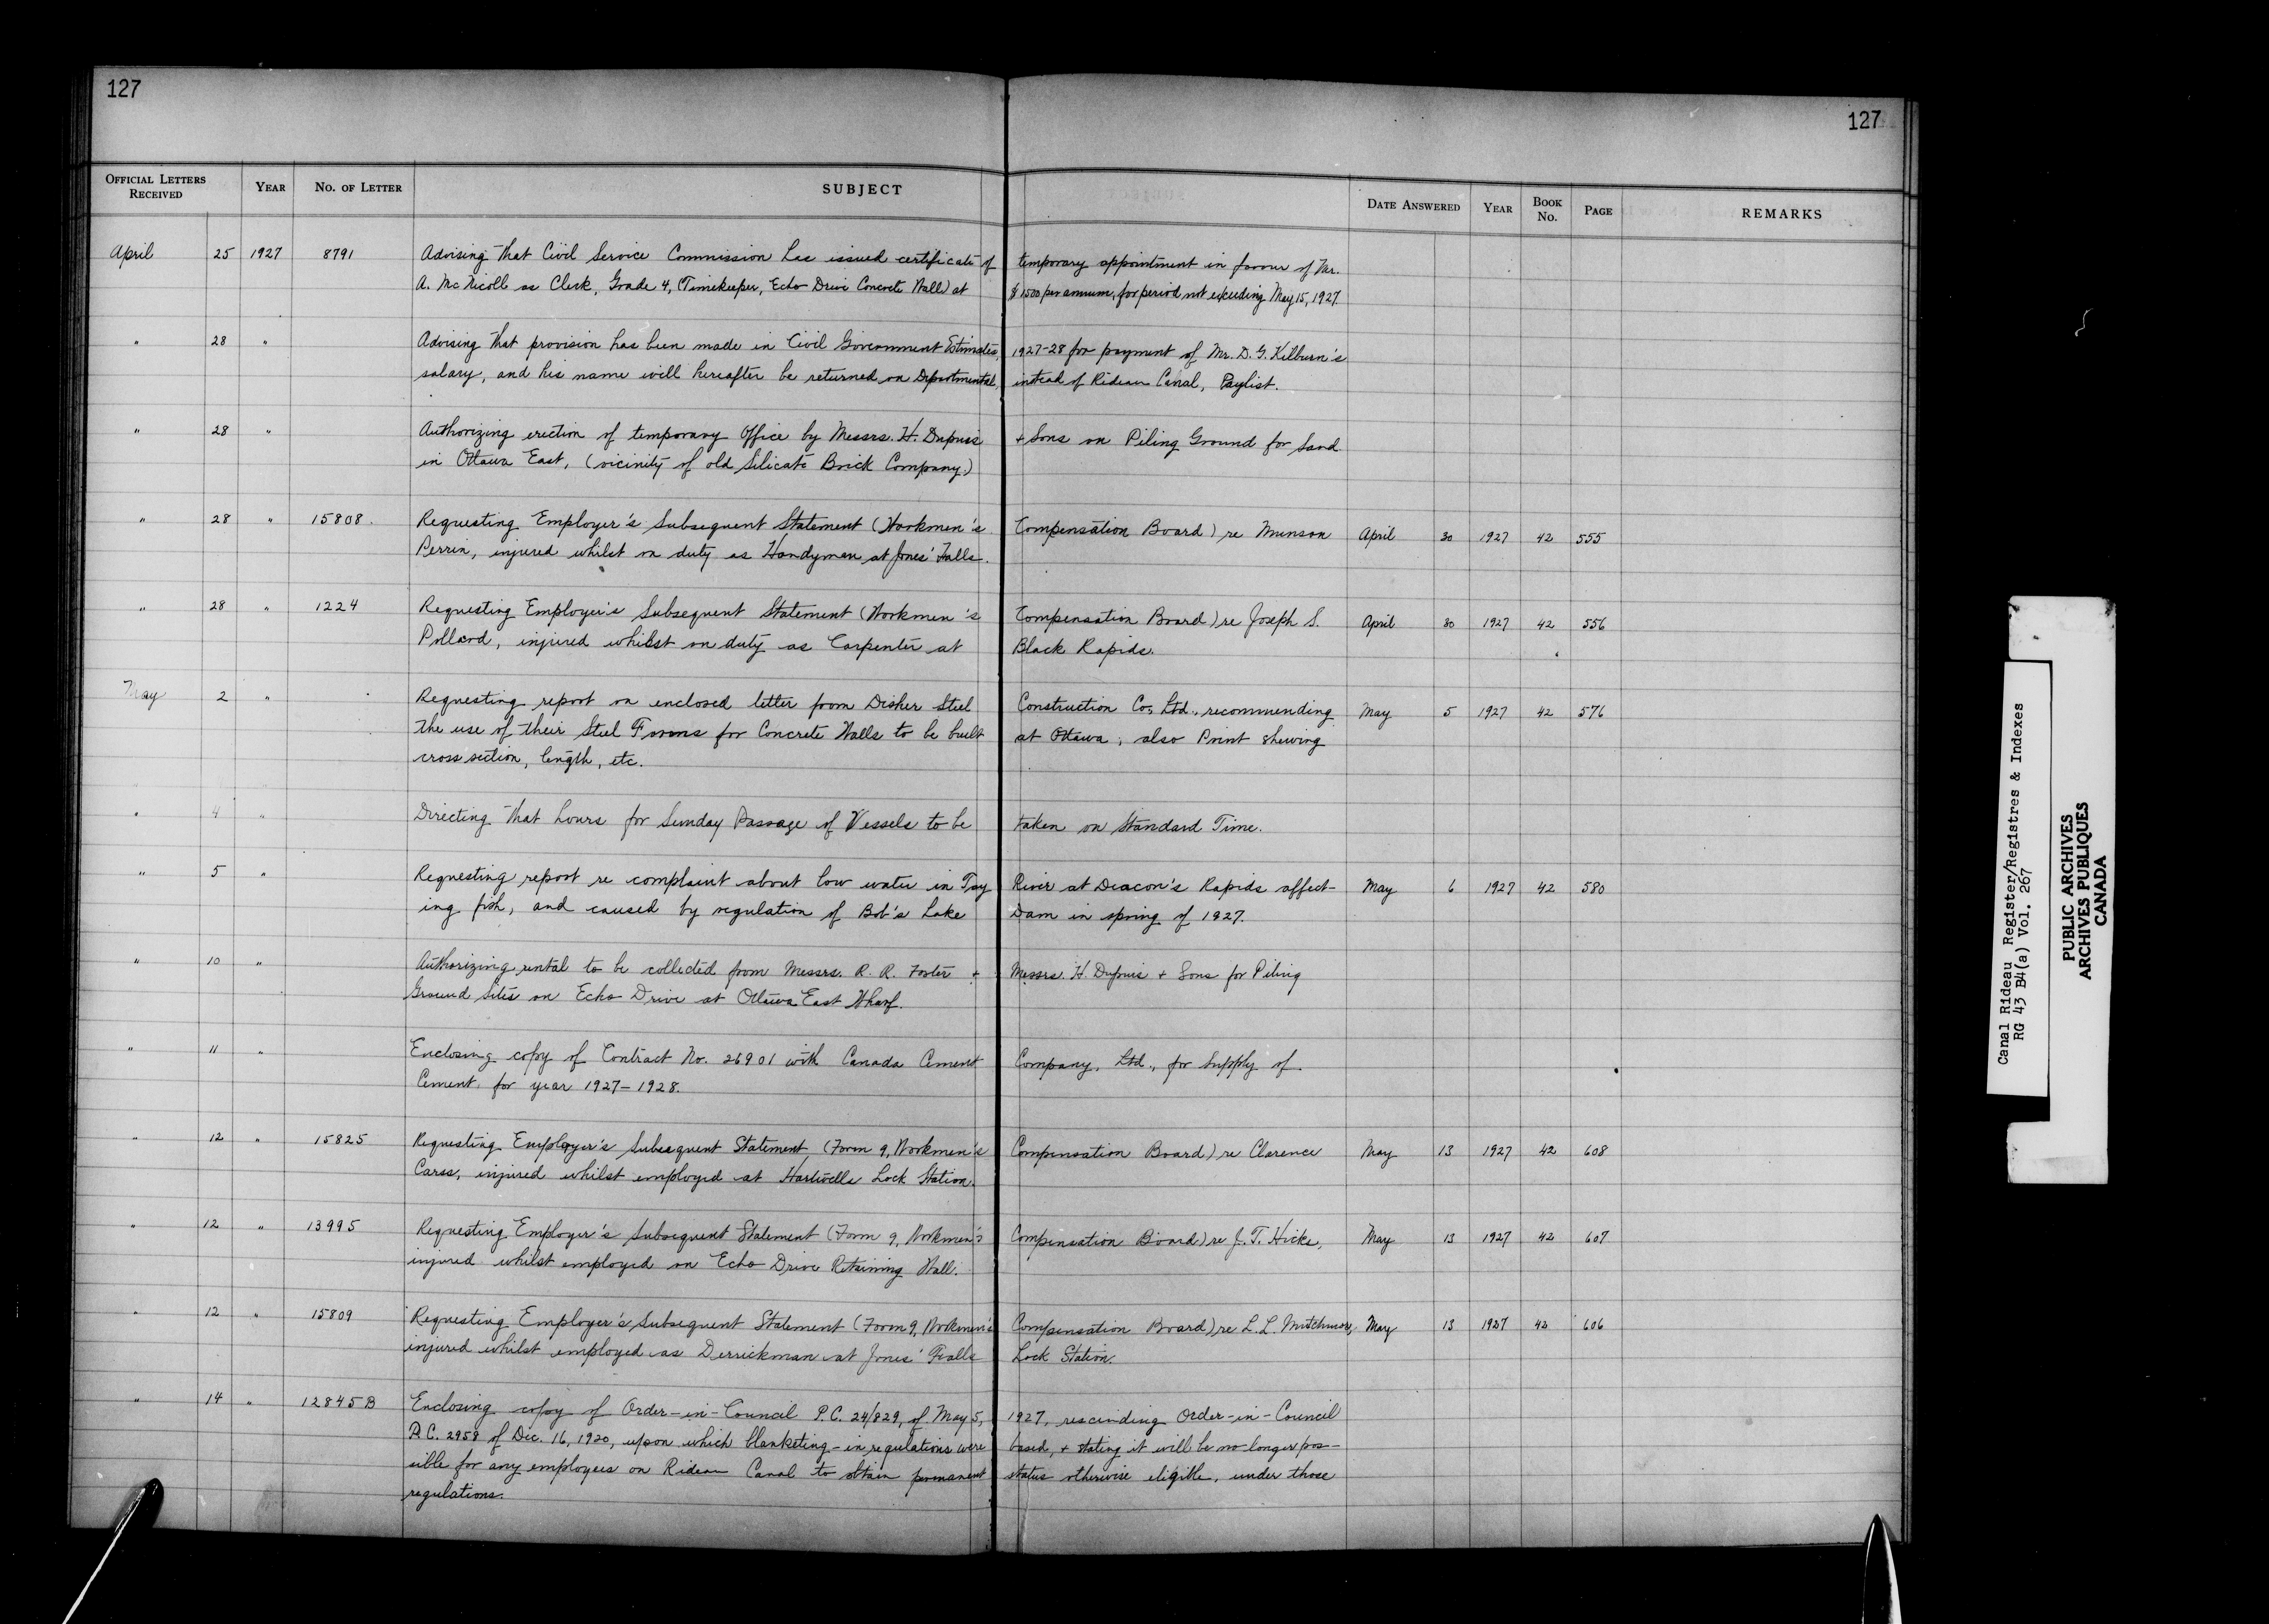 127
127
OFFICIAL LETTERS RECEIVED YEAR NO. OF LETTER SUBJECT DATE ANSWERED YEAR BOOK NO. PAGE REMARKS
April 25 1927 8791 Advising that Civil Service Commission has issued certificate of temporary appointment in favour of Mr.
A. McNicoll as Clerk, Grade 4, (Timekeeper, Echo Drive Concrete Wall) at $1500 per annum, for period not exceeding May 15, 1927.
" 28 " Advising that provision has been made in Civil Government Estimates, 1927-28 for payment of Mr. D. G. Kilburn's
salary, and his name will hereafter be returned on Departmental, instead of Rideau Canal, Paylist.
" 28 " Authorizing erection of temporary Office by Messrs. H. Dupuis + Sons on Piling Ground for Sand
in Ottawa East, (vicinity of old Silicate Brick Company.)
" 28 " 15808. Requesting Employer's Subsequent Statement (Workmen's Compensation Board) re Munson April 30 1927 42 555
Perrin, injured whilst on duty as Handyman at Jones' Falls.
" 28 " 1224 Requesting Employer's Subsequent Statement (Workmen's Compensation Board) re Joseph S. April 30 1927 42 556
Pollard, injured whilst on duty as Carpenter at Black Rapids.
May 2 " Requesting report on enclosed letter from Disher Steel Construction Co, Ltd., recommending May 5 1927 42 576
the use of their Steel Forms for Concrete Walls to be built at Ottawa, also Print shewing
cross section, length, etc.
" 4 " Directing that hours for Sunday Passage of Vessels to be taken on Standard Time.
" 5 " Requesting report re complaint about low water in Tay River at Deacon's Rapids affect- May 6 1927 42 580
ing fish, and caused by regulation of Bob's Lake Dam in spring of 1927.
" 10 " Authorizing rental to be collected from Messrs. R. R. Foster + Messrs. H. Dupuis + Sons for Piling
Ground Sites on Echo Drive at Ottawa East Wharf.
" 11 " Enclosing copy of Contract No. 26901 with Canada Cement Company, Ltd., for Supply of
Cement for year 1927-1928.
" 12 " 15825 Requesting Employer's Subsequent Statement (Form 9, Workmen's Compensation Board) re Clarence May 13 1927 42 608
Carss, injured whilst employed at Hartwells Lock Station.
" 12 " 13995 Requesting Employer's Subsequent Statement (Form 9, Workmen's Compensation Board) re J. T. Hicks, May 13 1927 42 607
injured whilst employed on Echo Drive Retaining Wall.
" 12 " 15809 Requesting Employer's Subsequent Statement (Form 9, Workmen's Compensation Board) re L. L. May 13 1927 42 606
injured whilst employed as Derrickman at Jones' Falls Lock Station.
" 14 " 12845B Enclosing copy of Order-in-Council P.C. 24/829, of May 5, 1927, rescinding Order-in-Council
P.C. 2958 of Dec. 16, 1920, upon which blanketing-in regulations were based, + stating it will be no longer pos-
sible for any employees on Rideau Canal to obtain permanent status otherwise eligible, under those
regulations.
Canal Rideau Register/Registres & Indexes
RG 43 B4(a) Vol. 267
PUBLIC ARCHIVES
ARCHIVES PUBLIQUES
CANADA